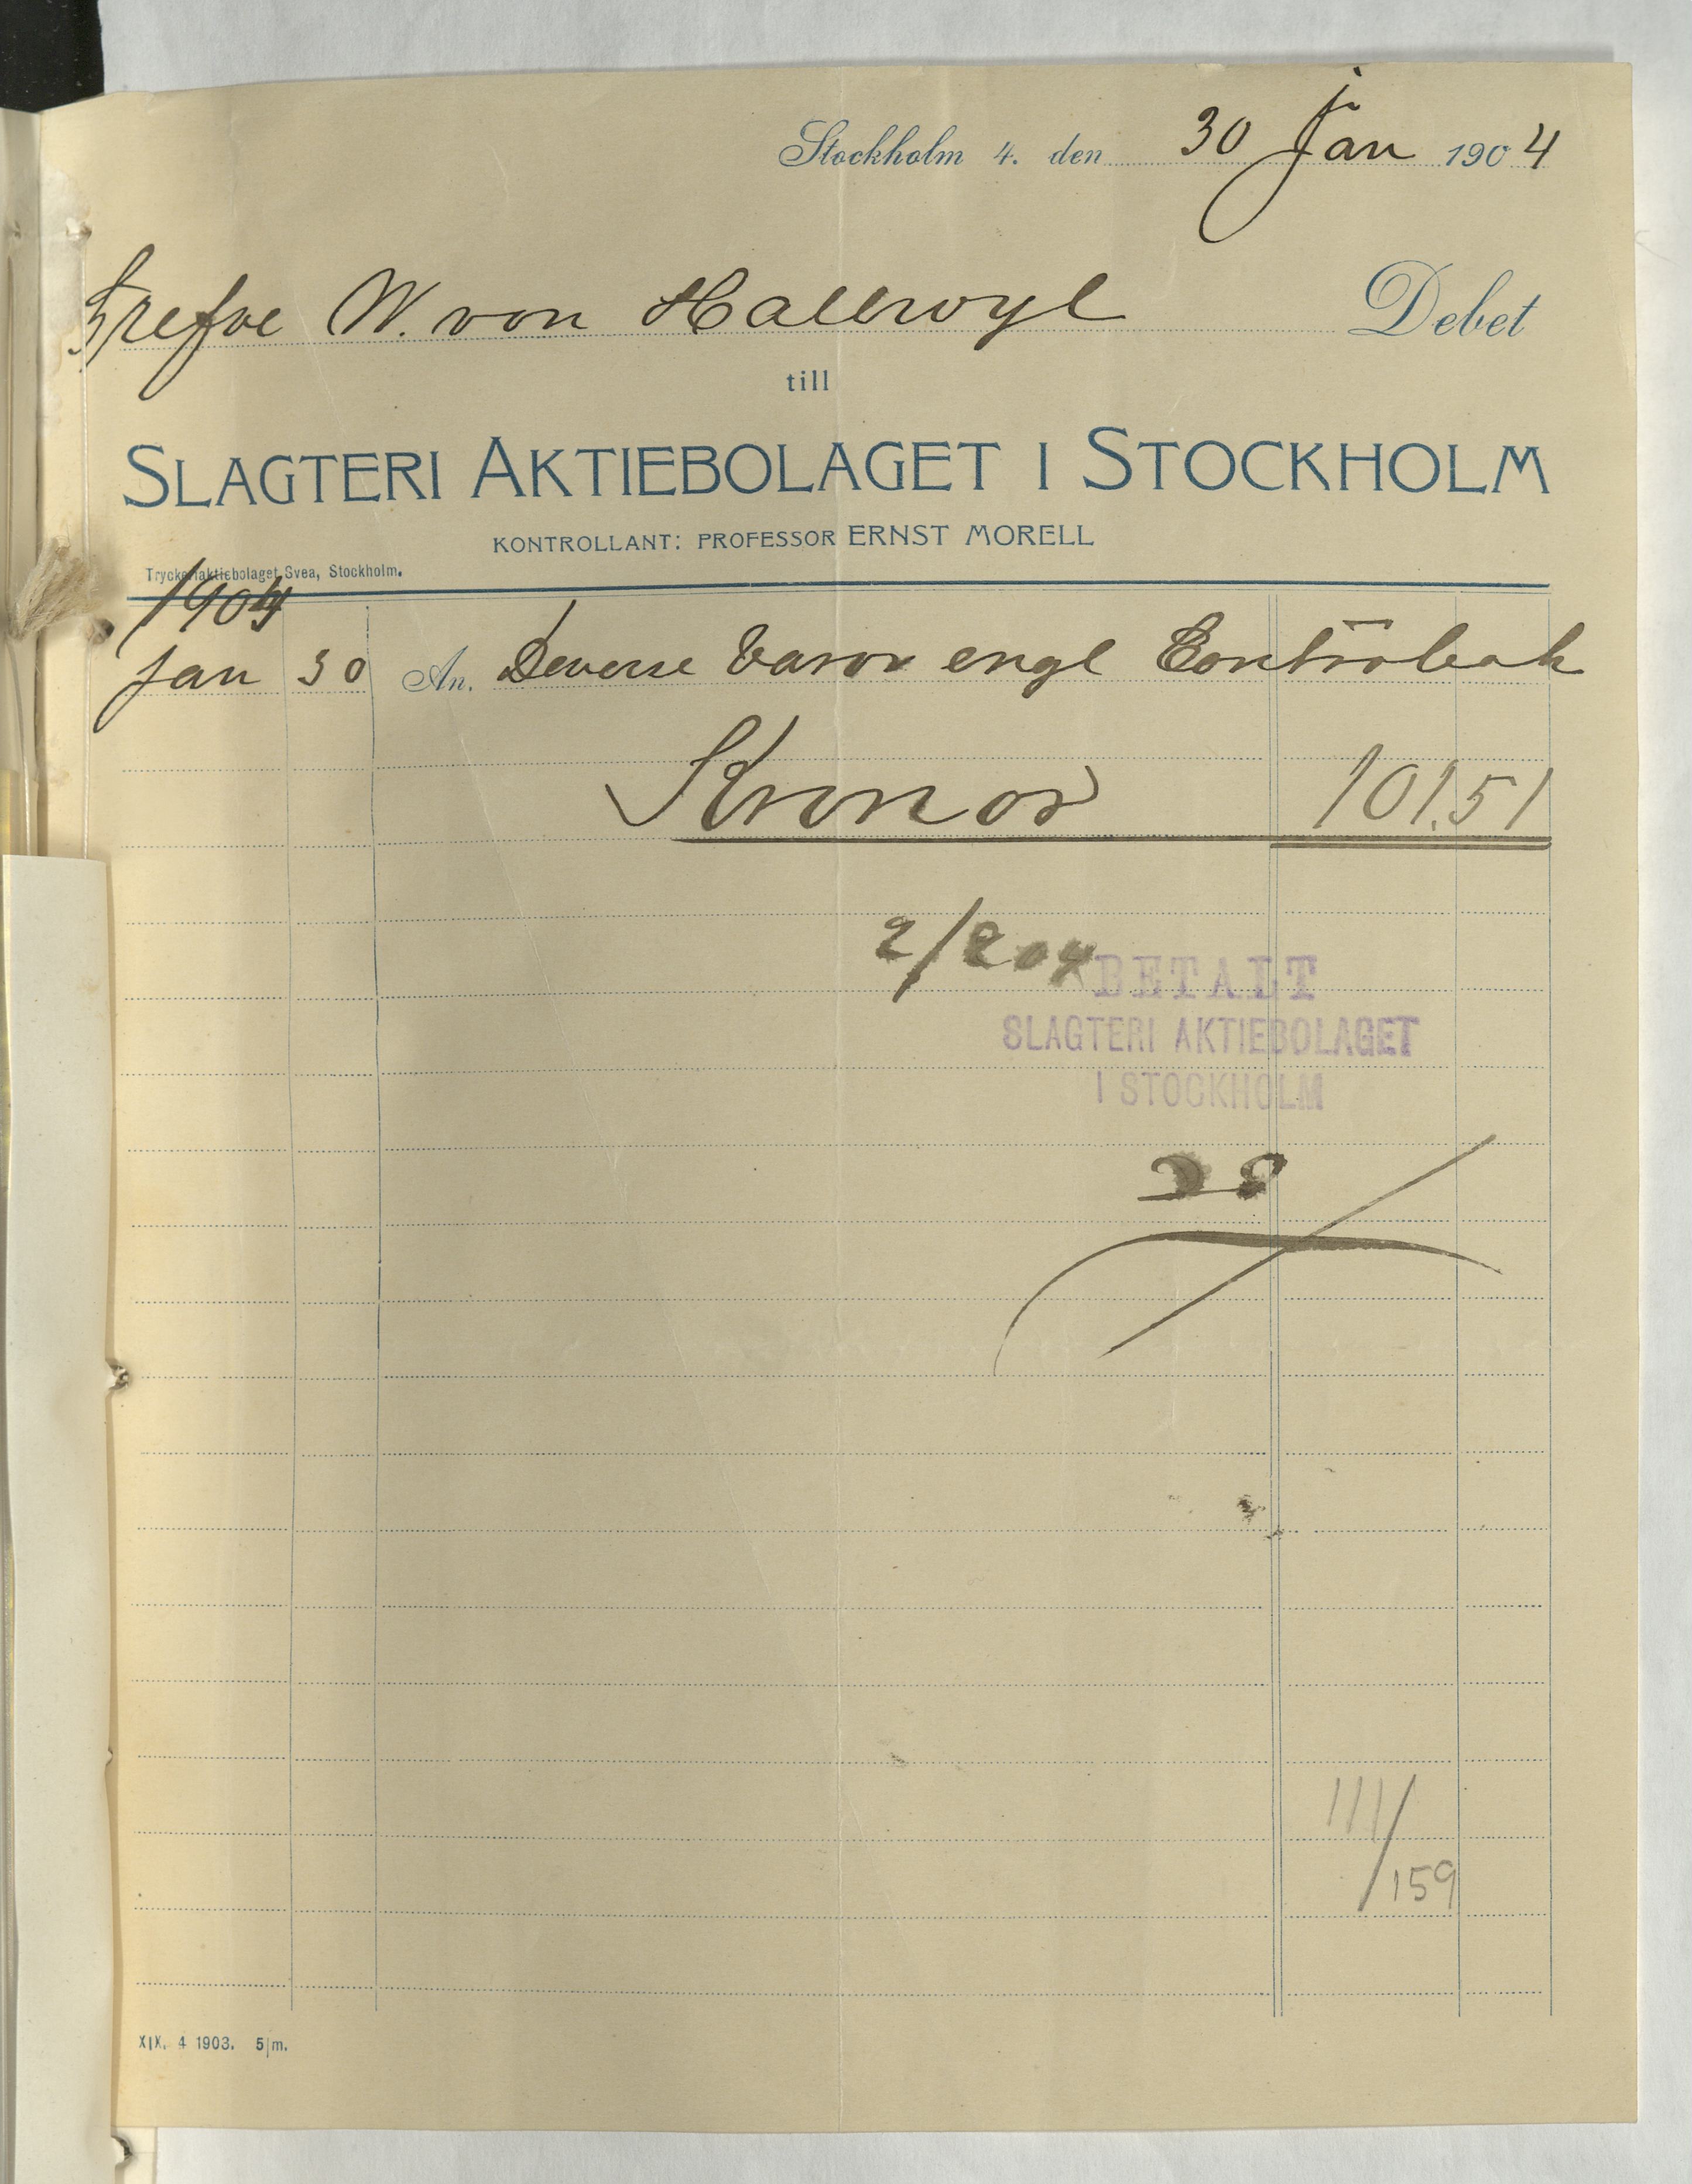 Stockholm 4. den 30 Jan 1904
Grefve W. von Hallwyl Debet
till
SLAGTERI AKTIEBOLAGET I STOCKHOLM
KONTROLLANT: PROFESSOR ERNST MORELL
Tryckeriaktiebolaget Svea, Stockholm.
1904
Jan 30 An. Deverse Varor engl Contrabok
Kronor 101.51
2/2 04
BETALT
SLAGTERI AKTIEBOLAGET
I STOCKHOLM
111/159
XIX. 4 1903. 5/m.